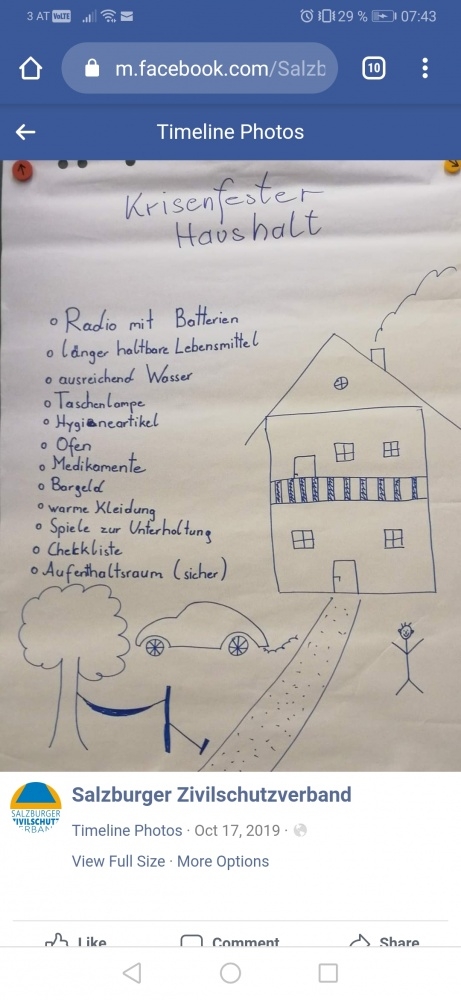 3 AT VoLTE 29 % 07:43
m.facebook.com/Salzb
10
Timeline Photos
Krisenfester
Haushalt
Radio mit Batterien
länger haltbare Lebensmittel
ausreichend Wasser
Taschenlampe
Hygieneartikel
Ofen
Medikamente
Bargeld
warme Kleidung
Spiele zur Unterholtung
Chekkliste
Aufenthaltsraum (sicher)
SALZBURGER
Salzburger Zivilschutzverband
Timeline Photos · Oct 17, 2019 ·
View Full Size · More Options
Like Comment Share